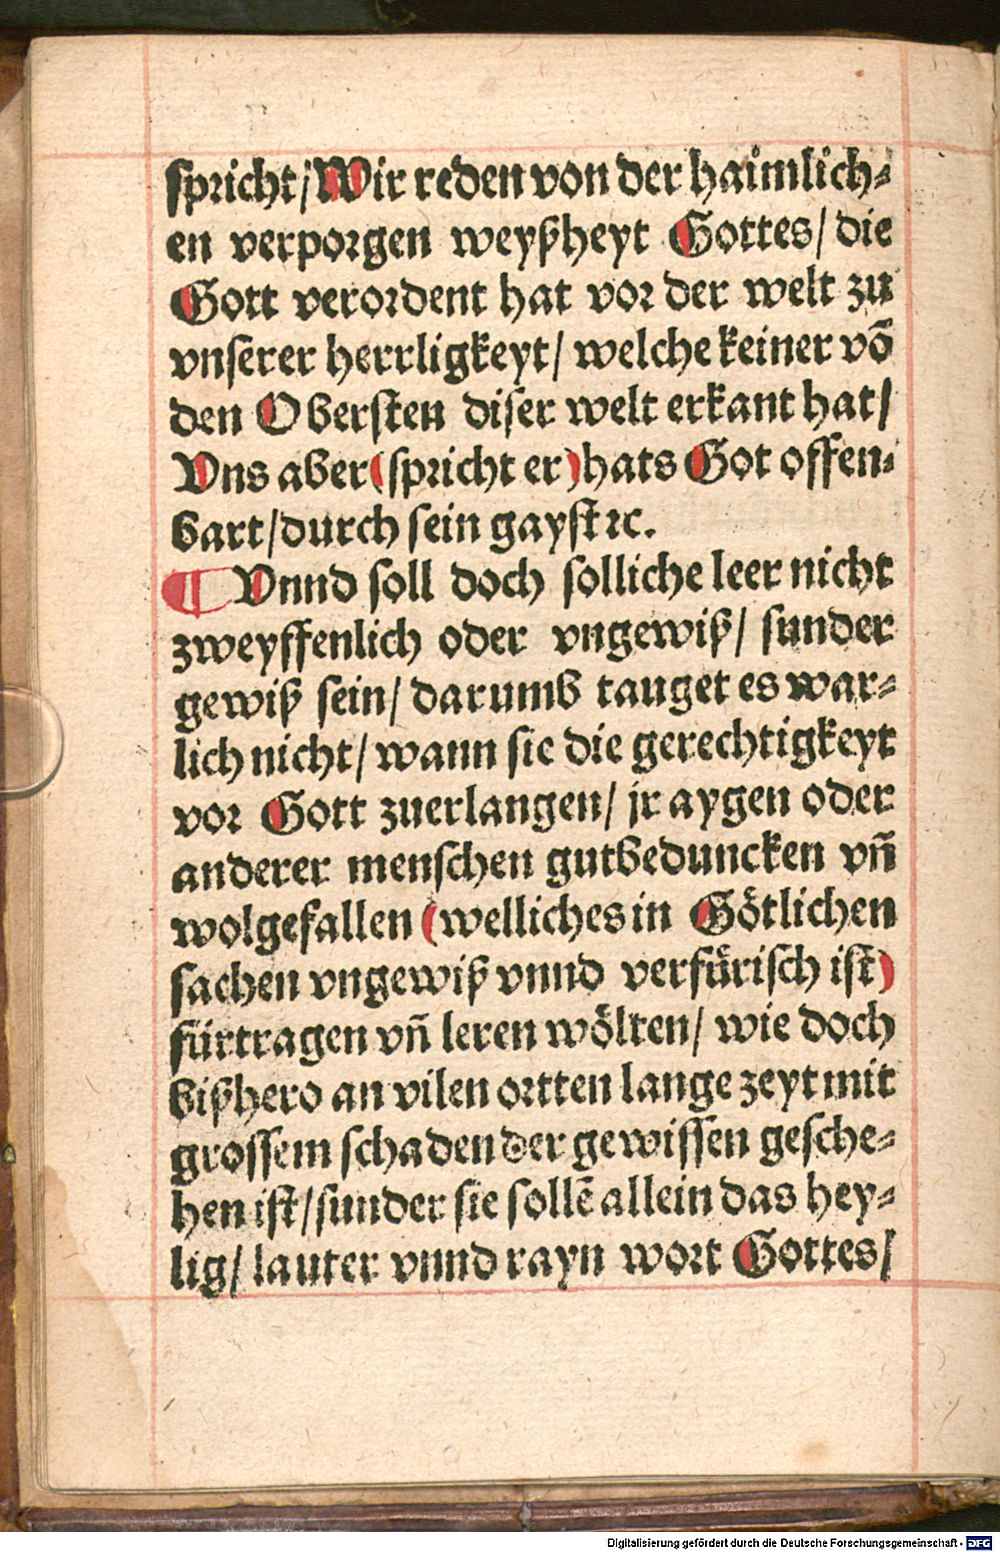 spricht/ Wir reden von der haimlich⸗
en verporgen weyßheyt Gottes/ die
Gott verordent hat vor der welt zu
vnserer herrligkeyt/ welche keiner võ
den Obersten diser welt erkant hat/
Vns aber (spricht er) hats Got offen⸗
bart/ durch sein gayst ꝛc.
¶ Vnnd soll doch solliche leer nicht
zweyffenlich oder vngewiß/ sunder
gewiß sein/ darumb tauget es war⸗
lich nicht/ wann sie die gerechtigkeyt
vor Gott zuerlangen/ jr aygen oder
anderer menschen gutbeduncken vñ
wolgefallen (welliches in Götlichen
sachen vngewiß vnnd verfürisch ist)
fürtragen vñ leren wölten/ wie doch
bißhero an vilen ortten lange zeyt mit
grossem schaden der gewissen gesche⸗
hen ist/ sunder sie sollẽ allein das hey⸗
lig/ lauter vnnd rayn wort Gottes/
Digitalisierung gefördert durch die Deutsche Forschungsgemeinschaft - DFG